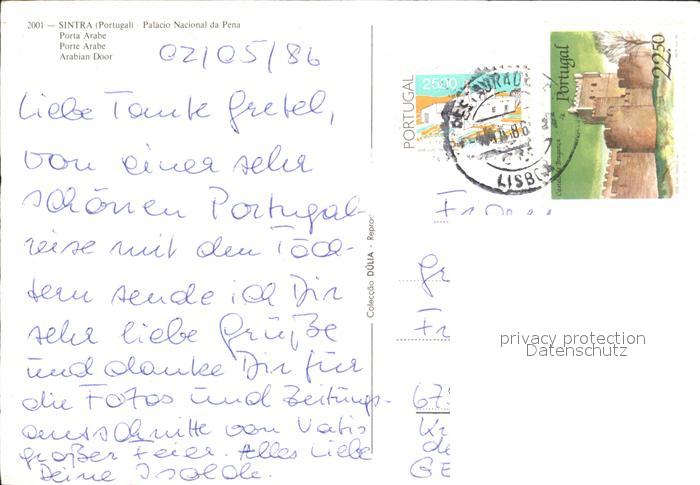 2001 — SINTRA (Portugal) - Palácio Nacional da Pena
Porta Arabe
Porte Arabe
Arabian Door
02/05/86
Liebe Tante Gretel,
von einer sehr
schönen Portugal-
reise mit den Töch-
tern sende ich Dir
sehr liebe Grüße
und danke Dir für
die Fotos und Zeitungs-
ausschnitte von Vatis
großer Feier. Alles Liebe
Deine Isolde.
Colecção DÚLIA - Repro
PORTUGAL
2500
RESTAURADO
86
LISBOA
Portugal
22.50
Fr
Gr
Fr
675
Kr
de
GE
privacy protection
Datenschutz